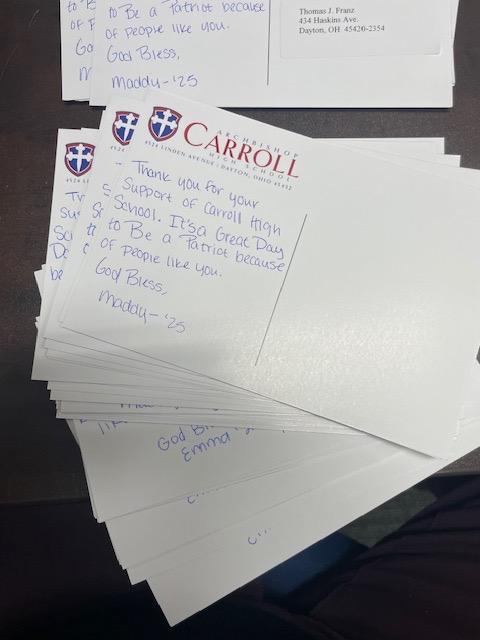 to Be a Patriot because
of people like you.
God Bless,
Maddy-'25
Thomas J. Franz
434 Haskins Ave.
Dayton, OH 45420-2354
ARCHBISHOP
CARROLL
HIGH SCHOOL
4524 LINDEN AVENUE | DAYTON, OHIO 45432
Thank you for your
Support of Carroll High
School. It's a Great Day
to Be a Patriot because
of people like you.
God Bless,
Maddy-'25
4524
4524 L
God
Emma